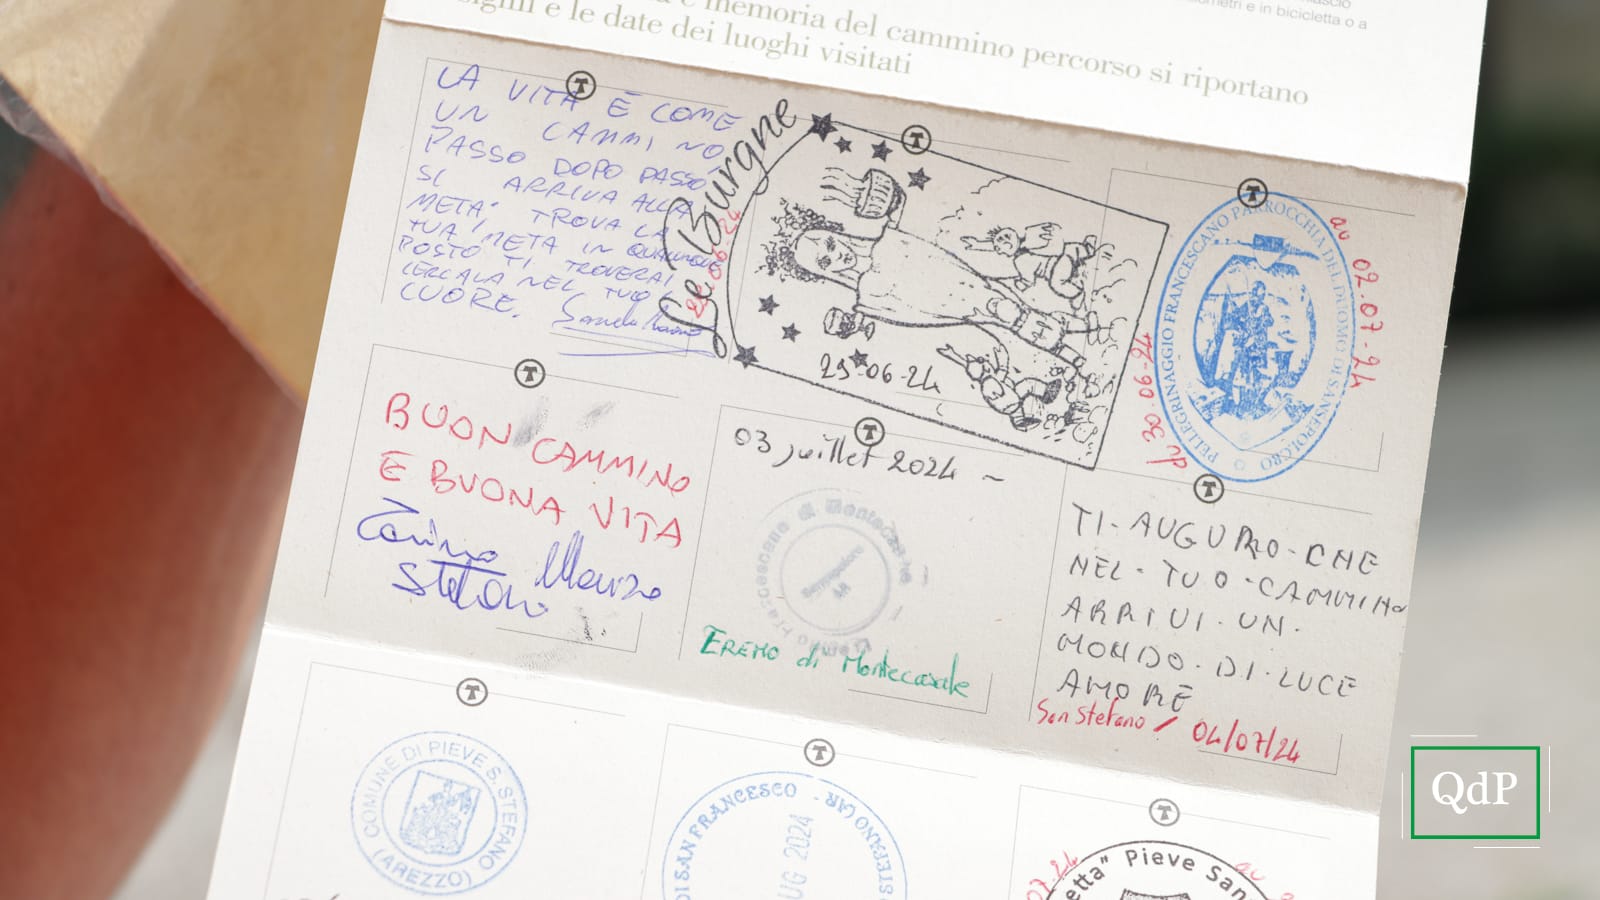 memoria del cammino percorso si riportano
e le date dei luoghi visitati
ometri e in bicicletta o a
LA VITA È COME
UN CAMMINO
PASSO DOPO PASSO
SI ARRIVA ALLA
META' TROVA LA
TUA META IN QUALUNQUE
POSTO TI TROVERAI
CERCALA NEL TUO
CUORE.
Le Burgne
29-06-24
PELLEGRINAGGIO FRANCESCANO PARROCCHIA DEL DUOMO DI SANSEPOLCRO
du 30-06-24
au 02.07-24
BUON CAMMINO
E BUONA VITA
Stefano
03 juillet 2024 -
Eremo Francescano di Montecasale
Sansepolcro
AR
EREMO di Montecasale
TI-AUGURO-CHE
NEL-TUO-CAMMINO
ARRIVI.UN.
MONDO.DI.LUCE
AMORE
San Stefano / 04/07/24
COMUNE DI PIEVE S. STEFANO
(AREZZO)
DI SAN FRANCESCO - STEFANO (AR)
UG 2024
etta" Pieve San
07-24
au
QdP